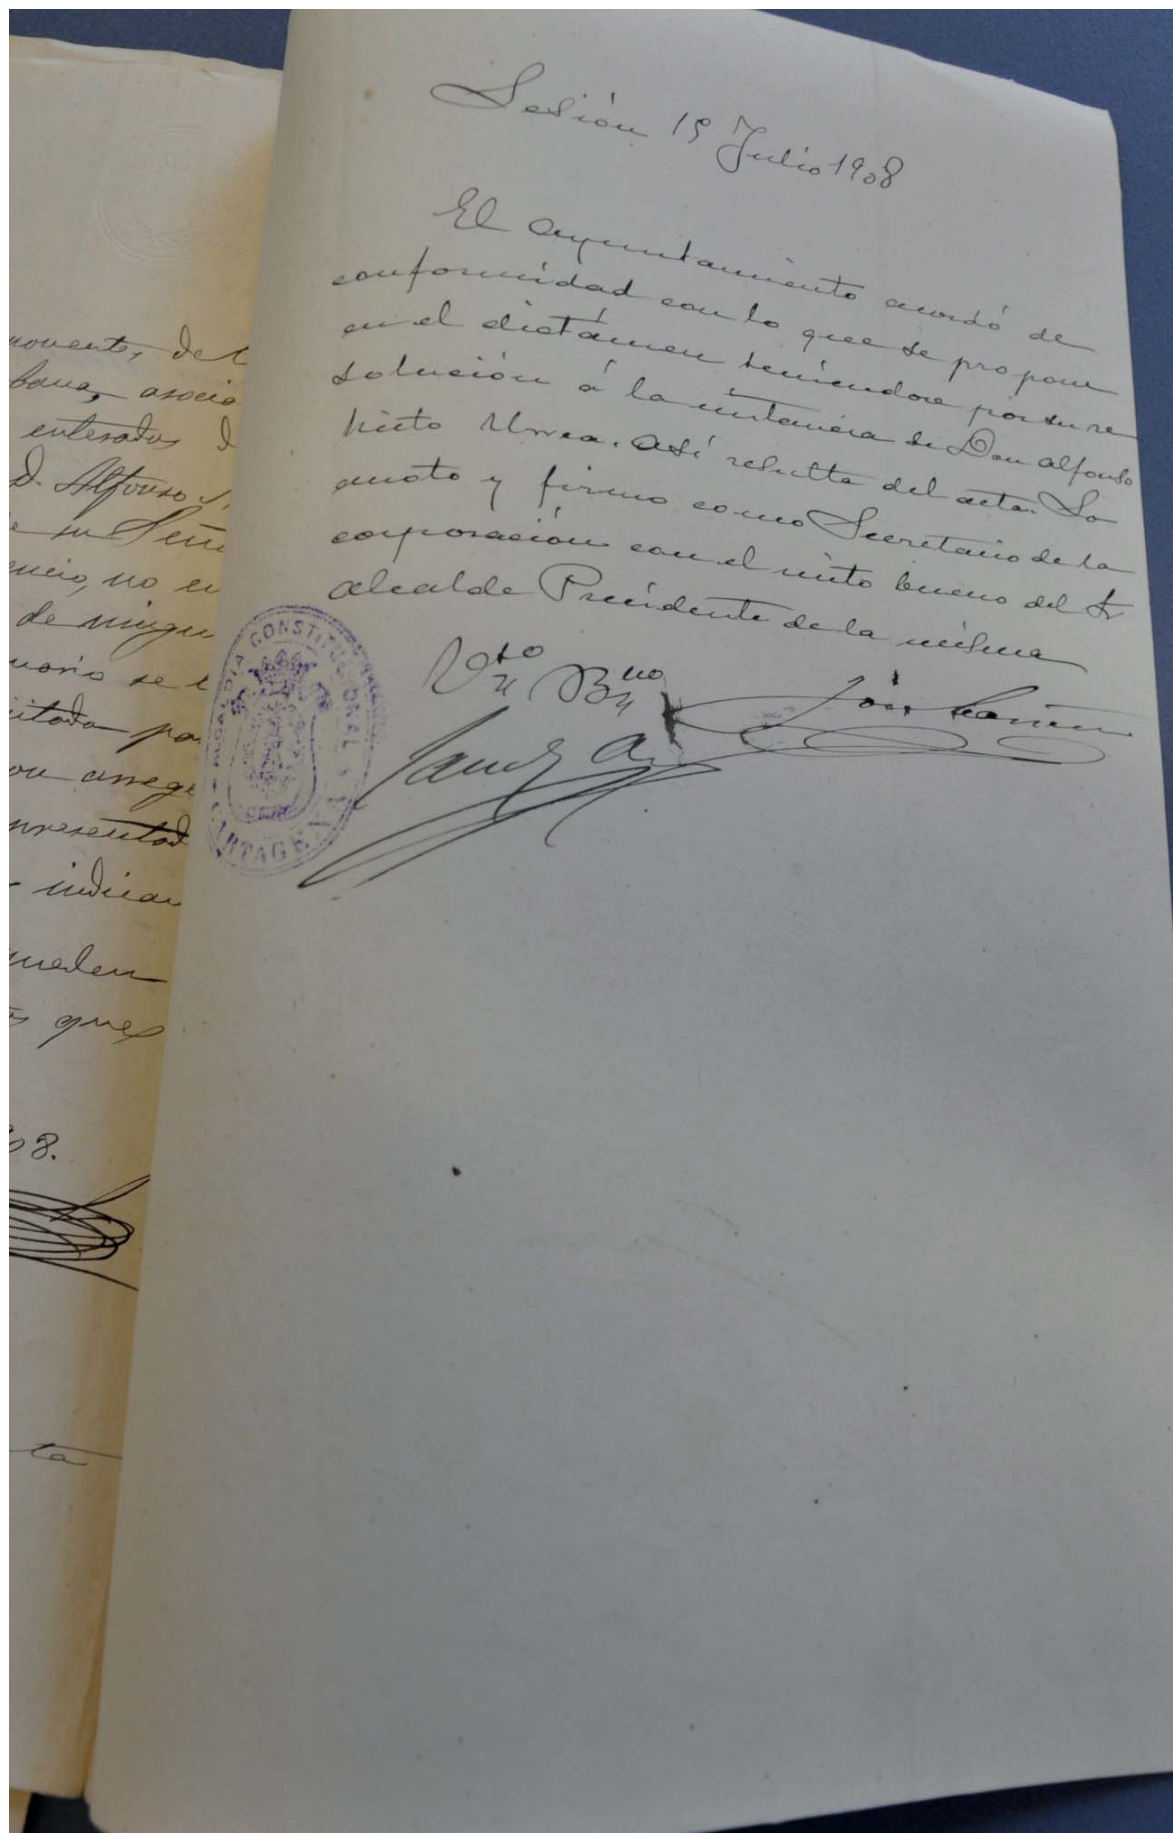 novente, del
bana, asocia
enterados d
D. Alfonso
e su Seño
encio, no en
de ningu
se
citada pa
on arregl
presentad
indican
queden
que
08.
ta
Sesión 15 Julio 1908
El Ayuntamiento acordó de
conformidad con lo que se propone
en el dictámen teniendose por su re
solución á la instancia de Don Alfonso
Nieto Urrea. Así resulta del acta. Lo
anoto y firmo como Secretario de la
corporación con el visto bueno del Sr
Alcalde Presidente de la misma
Vto Bno
José
Sanchez A.
ALCALDIA CONSTITUCIONAL
CARTAGENA